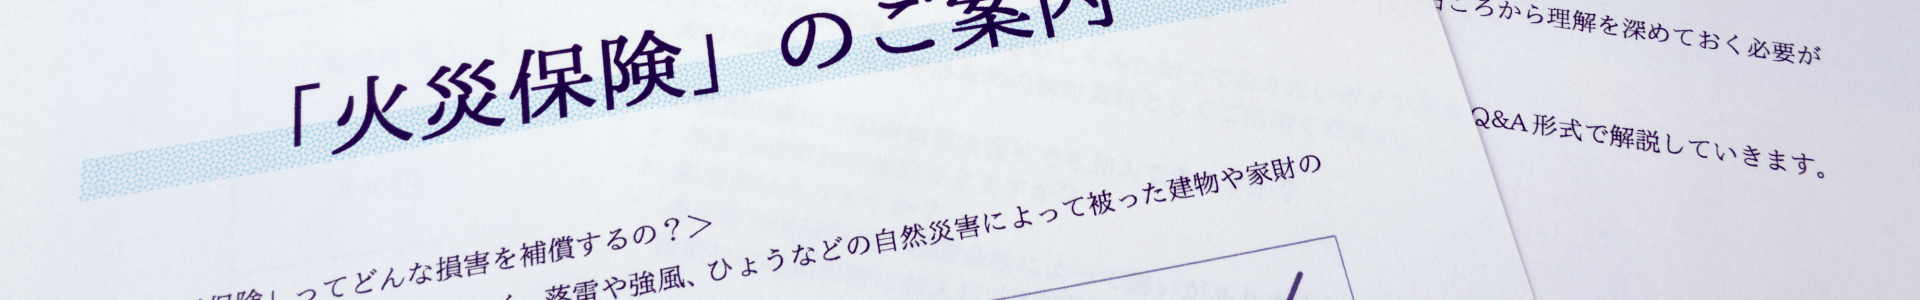 「火災保険」のご案内
保険」ってどんな損害を補償するの？＞
落雷や強風、ひょうなどの自然災害によって被った建物や家財の
ころから理解を深めておく必要が
Q&A 形式で解説していきます。